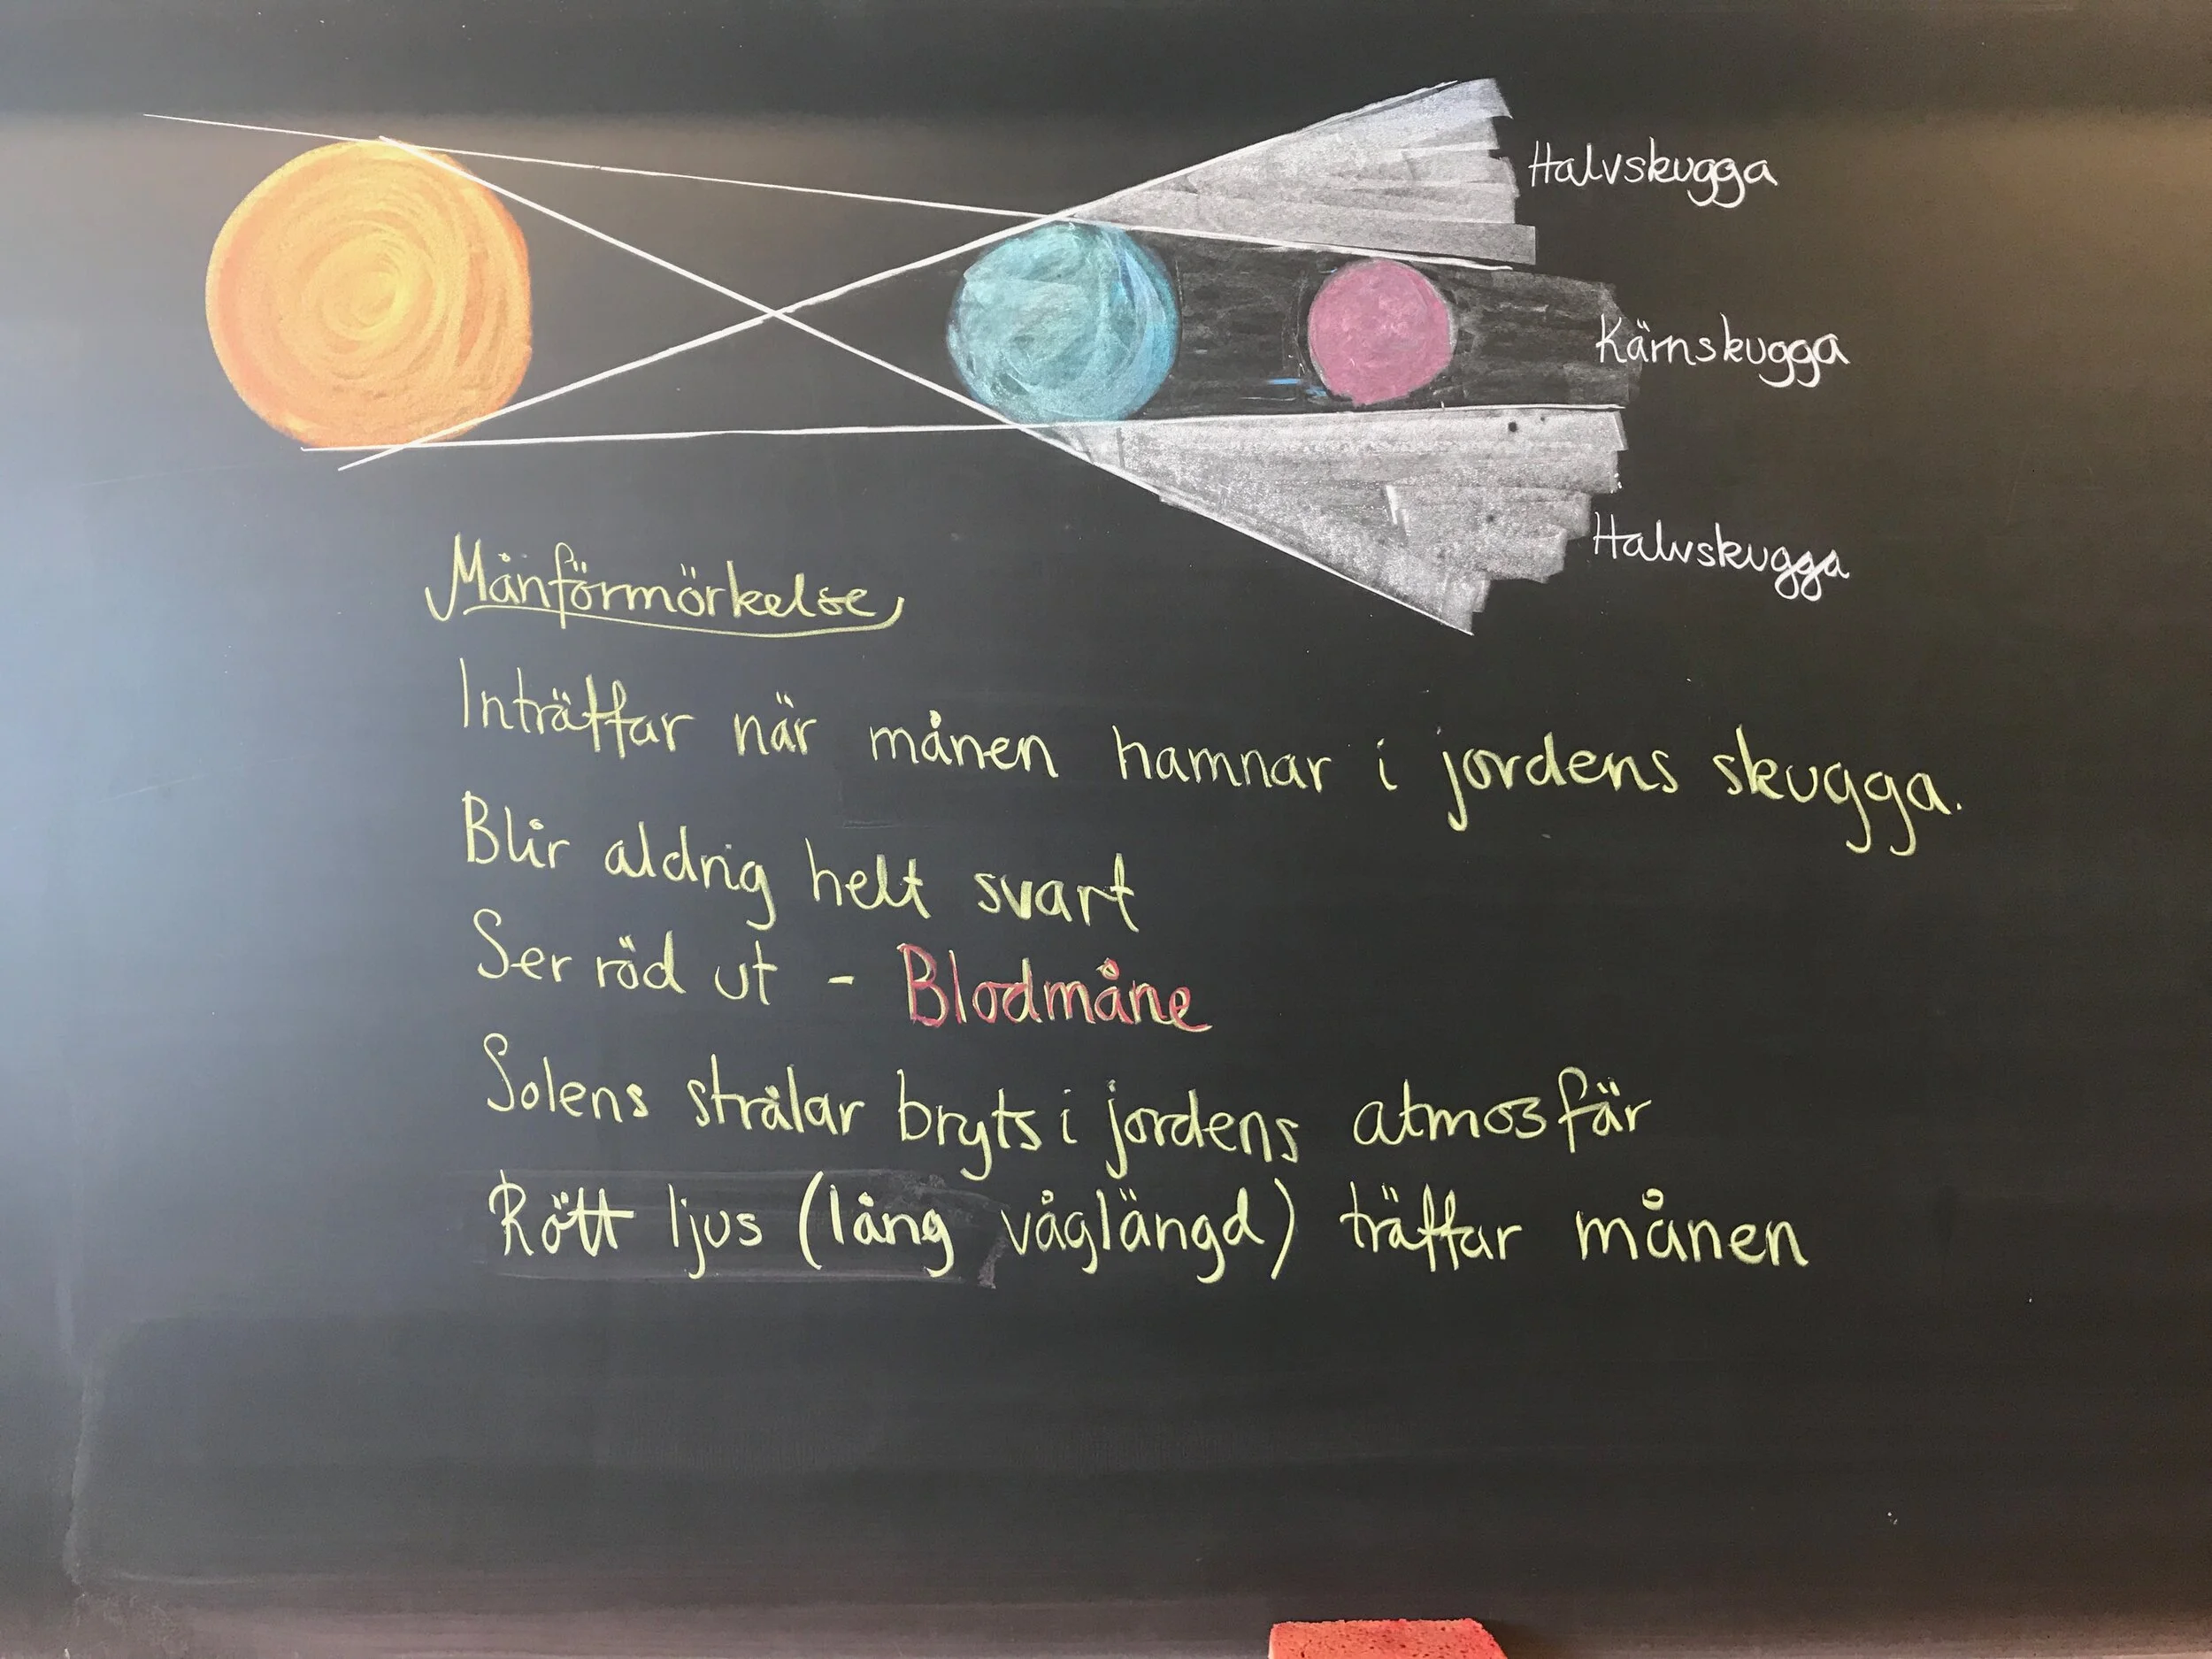 Halvskugga
Kärnskugga
Halvskugga
Månförmörkelse
Inträffar när månen hamnar i jordens skugga.
Blir aldrig helt svart
Ser röd ut - Blodmåne
Solens strålar bryts i jordens atmosfär
Rött ljus (lång våglängd) träffar månen